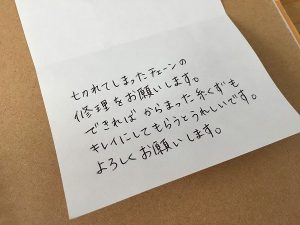 切れてしまったチェーンの
修理をお願いします。
できればからまった糸くずも
キレイにしてもらうとうれしいです。
よろしくお願いします。